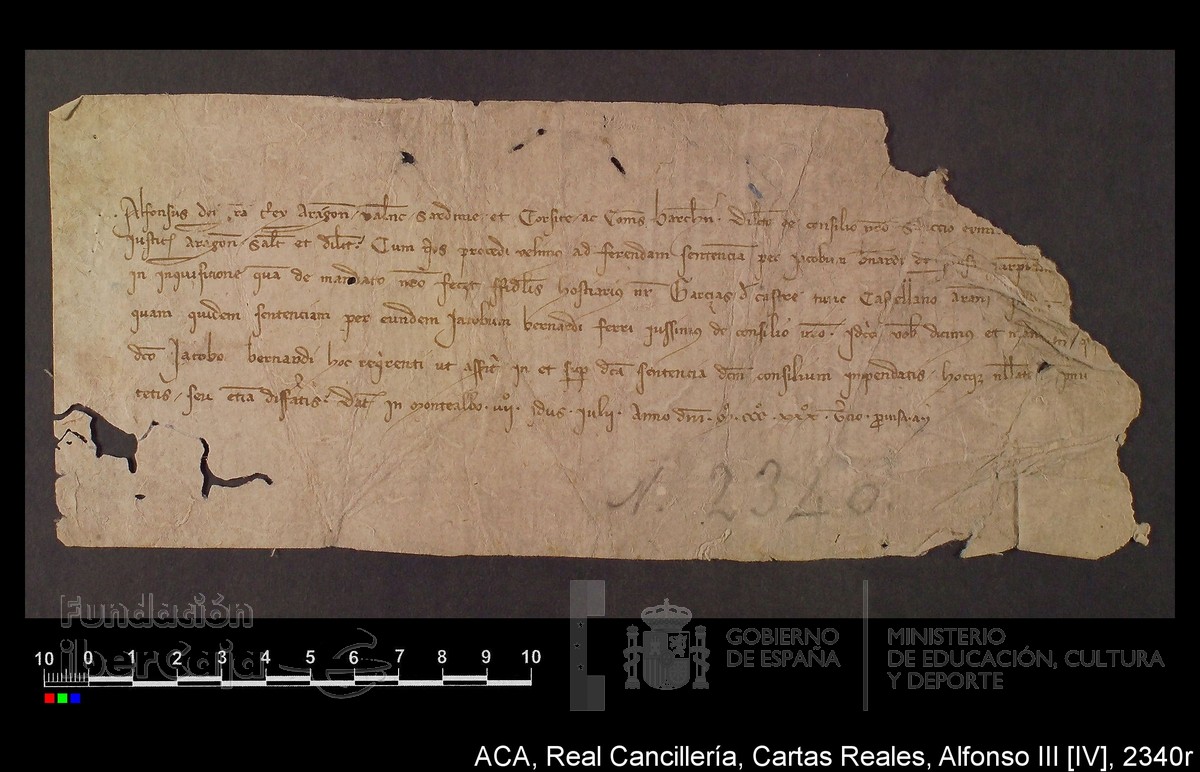 Alfonsus dei gra Rex Aragon Valenc Sardinie et Corsice ac Comes barchn. Dilcto de consilio nro
Justic Aragon Salt et dilct. Cum Nos procedi velimus ad ferendam sentenciam per Jacobum bnardi de
in inquisitione qua de mandato nro fecit ffidelis hostiarius nr Garcias de castre tunc Castellano
quam quidem sentenciam per eundem Jacobum bernardi ferri iussimus de consilio vro. Idco vob dicimus et
dco Jacobo bernardi hoc reqirenti ut assit in et sup dca sentencia dcm consilium inpendatis hocqz nllate
tetis seu etia differatis. Dat in Montealbo. vii. idus Iulii. Anno dni. Mº. CCCº. xxxº. tercio
N. 2340.
Fundación
ibercaja
10 0 1 2 3 4 5 6 7 8 9 10
GOBIERNO
DE ESPAÑA
MINISTERIO
DE EDUCACIÓN, CULTURA
Y DEPORTE
ACA, Real Cancillería, Cartas Reales, Alfonso III [IV], 2340r